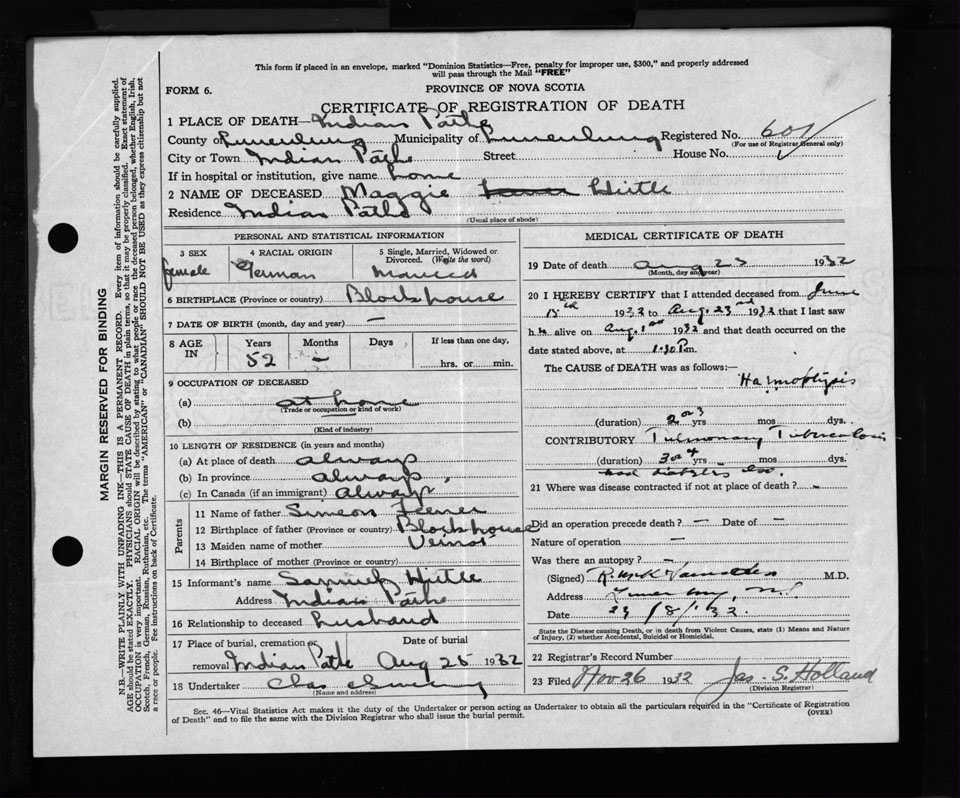 This form if placed in an envelope, marked "Dominion Statistics—Free, penalty for improper use, $300," and properly addressed
will pass through the Mail "FREE"
FORM 6.
PROVINCE OF NOVA SCOTIA
CERTIFICATE OF REGISTRATION OF DEATH
1 PLACE OF DEATH— Indian Path
County of Lunenburg Municipality of Lunenburg Registered No. 601
(For use of Registrar General only)
City or Town Indian Path Street House No.
If in hospital or institution, give name home
2 NAME OF DECEASED Maggie Hirtle
Residence Indian Path
(Usual place of abode)
PERSONAL AND STATISTICAL INFORMATION
3 SEX 4 RACIAL ORIGIN 5 Single, Married, Widowed or
Divorced. (Write the word)
female German Married
6 BIRTHPLACE (Province or country) Blockhouse
7 DATE OF BIRTH (month, day and year) —
8 AGE IN Years Months Days If less than one day,
52 — hrs. or min.
9 OCCUPATION OF DECEASED
(a) at home
(Trade or occupation or kind of work)
(b)
(Kind of industry)
10 LENGTH OF RESIDENCE (in years and months)
(a) At place of death always
(b) In province always
(c) In Canada (if an immigrant) always
Parents
11 Name of father Simeon Feener
12 Birthplace of father (Province or country) Blockhouse
13 Maiden name of mother Veinot
14 Birthplace of mother (Province or country)
15 Informant's name Hirtle
Address Indian Path
16 Relationship to deceased husband
17 Place of burial, cremation or Date of burial
removal Indian Path Aug 25 1932
18 Undertaker Chas
(Name and address)
MEDICAL CERTIFICATE OF DEATH
19 Date of death Aug 23 1932
(Month, day and year)
20 I HEREBY CERTIFY that I attended deceased from June
15th 1932 to Aug. 23rd 1932 that I last saw
h er alive on Aug. 1932 and that death occurred on
date stated above, at 1.30 P m.
The CAUSE of DEATH was as follows:—
Haemoptysis
(duration) 2 or 3 yrs. mos. dys.
CONTRIBUTORY Pulmonary Tuberculosis
(duration) 3 or 4 yrs. — mos. — dys.
had diabetes also.
21 Where was disease contracted if not at place of death? —
Did an operation precede death? — Date of —
Nature of operation —
Was there an autopsy? —
(Signed) M.D.
Address Lunenburg, N.S.
Date 23/8/32.
State the Disease causing Death, or in death from Violent Causes, state (1) Means and Nature
of Injury, (2) whether Accidental, Suicidal or Homicidal.
22 Registrar's Record Number
23 Filed Nov 26 1932 Jas. S. Holland
(Division Registrar)
Sec. 46—Vital Statistics Act makes it the duty of the Undertaker or person acting as Undertaker to obtain all the particulars required in the "Certificate of Registration
of Death" and to file the same with the Division Registrar who shall issue the burial permit. (OVER)
MARGIN RESERVED FOR BINDING
N.B.—WRITE PLAINLY WITH UNFADING INK—THIS IS A PERMANENT RECORD. Every item of information should be carefully supplied.
AGE should be stated EXACTLY. PHYSICIANS should STATE CAUSE OF DEATH in plain terms, so that it may be properly classified. Exact statement of
OCCUPATION is very important. RACIAL ORIGIN will be described by stating to what people or race the deceased person belonged, whether English, Irish,
Scotch, French, German, Russian, Ruthenian, etc. The terms "AMERICAN" or "CANADIAN" SHOULD NOT BE USED as they express citizenship but not
a race or people. See instructions on back of Certificate.